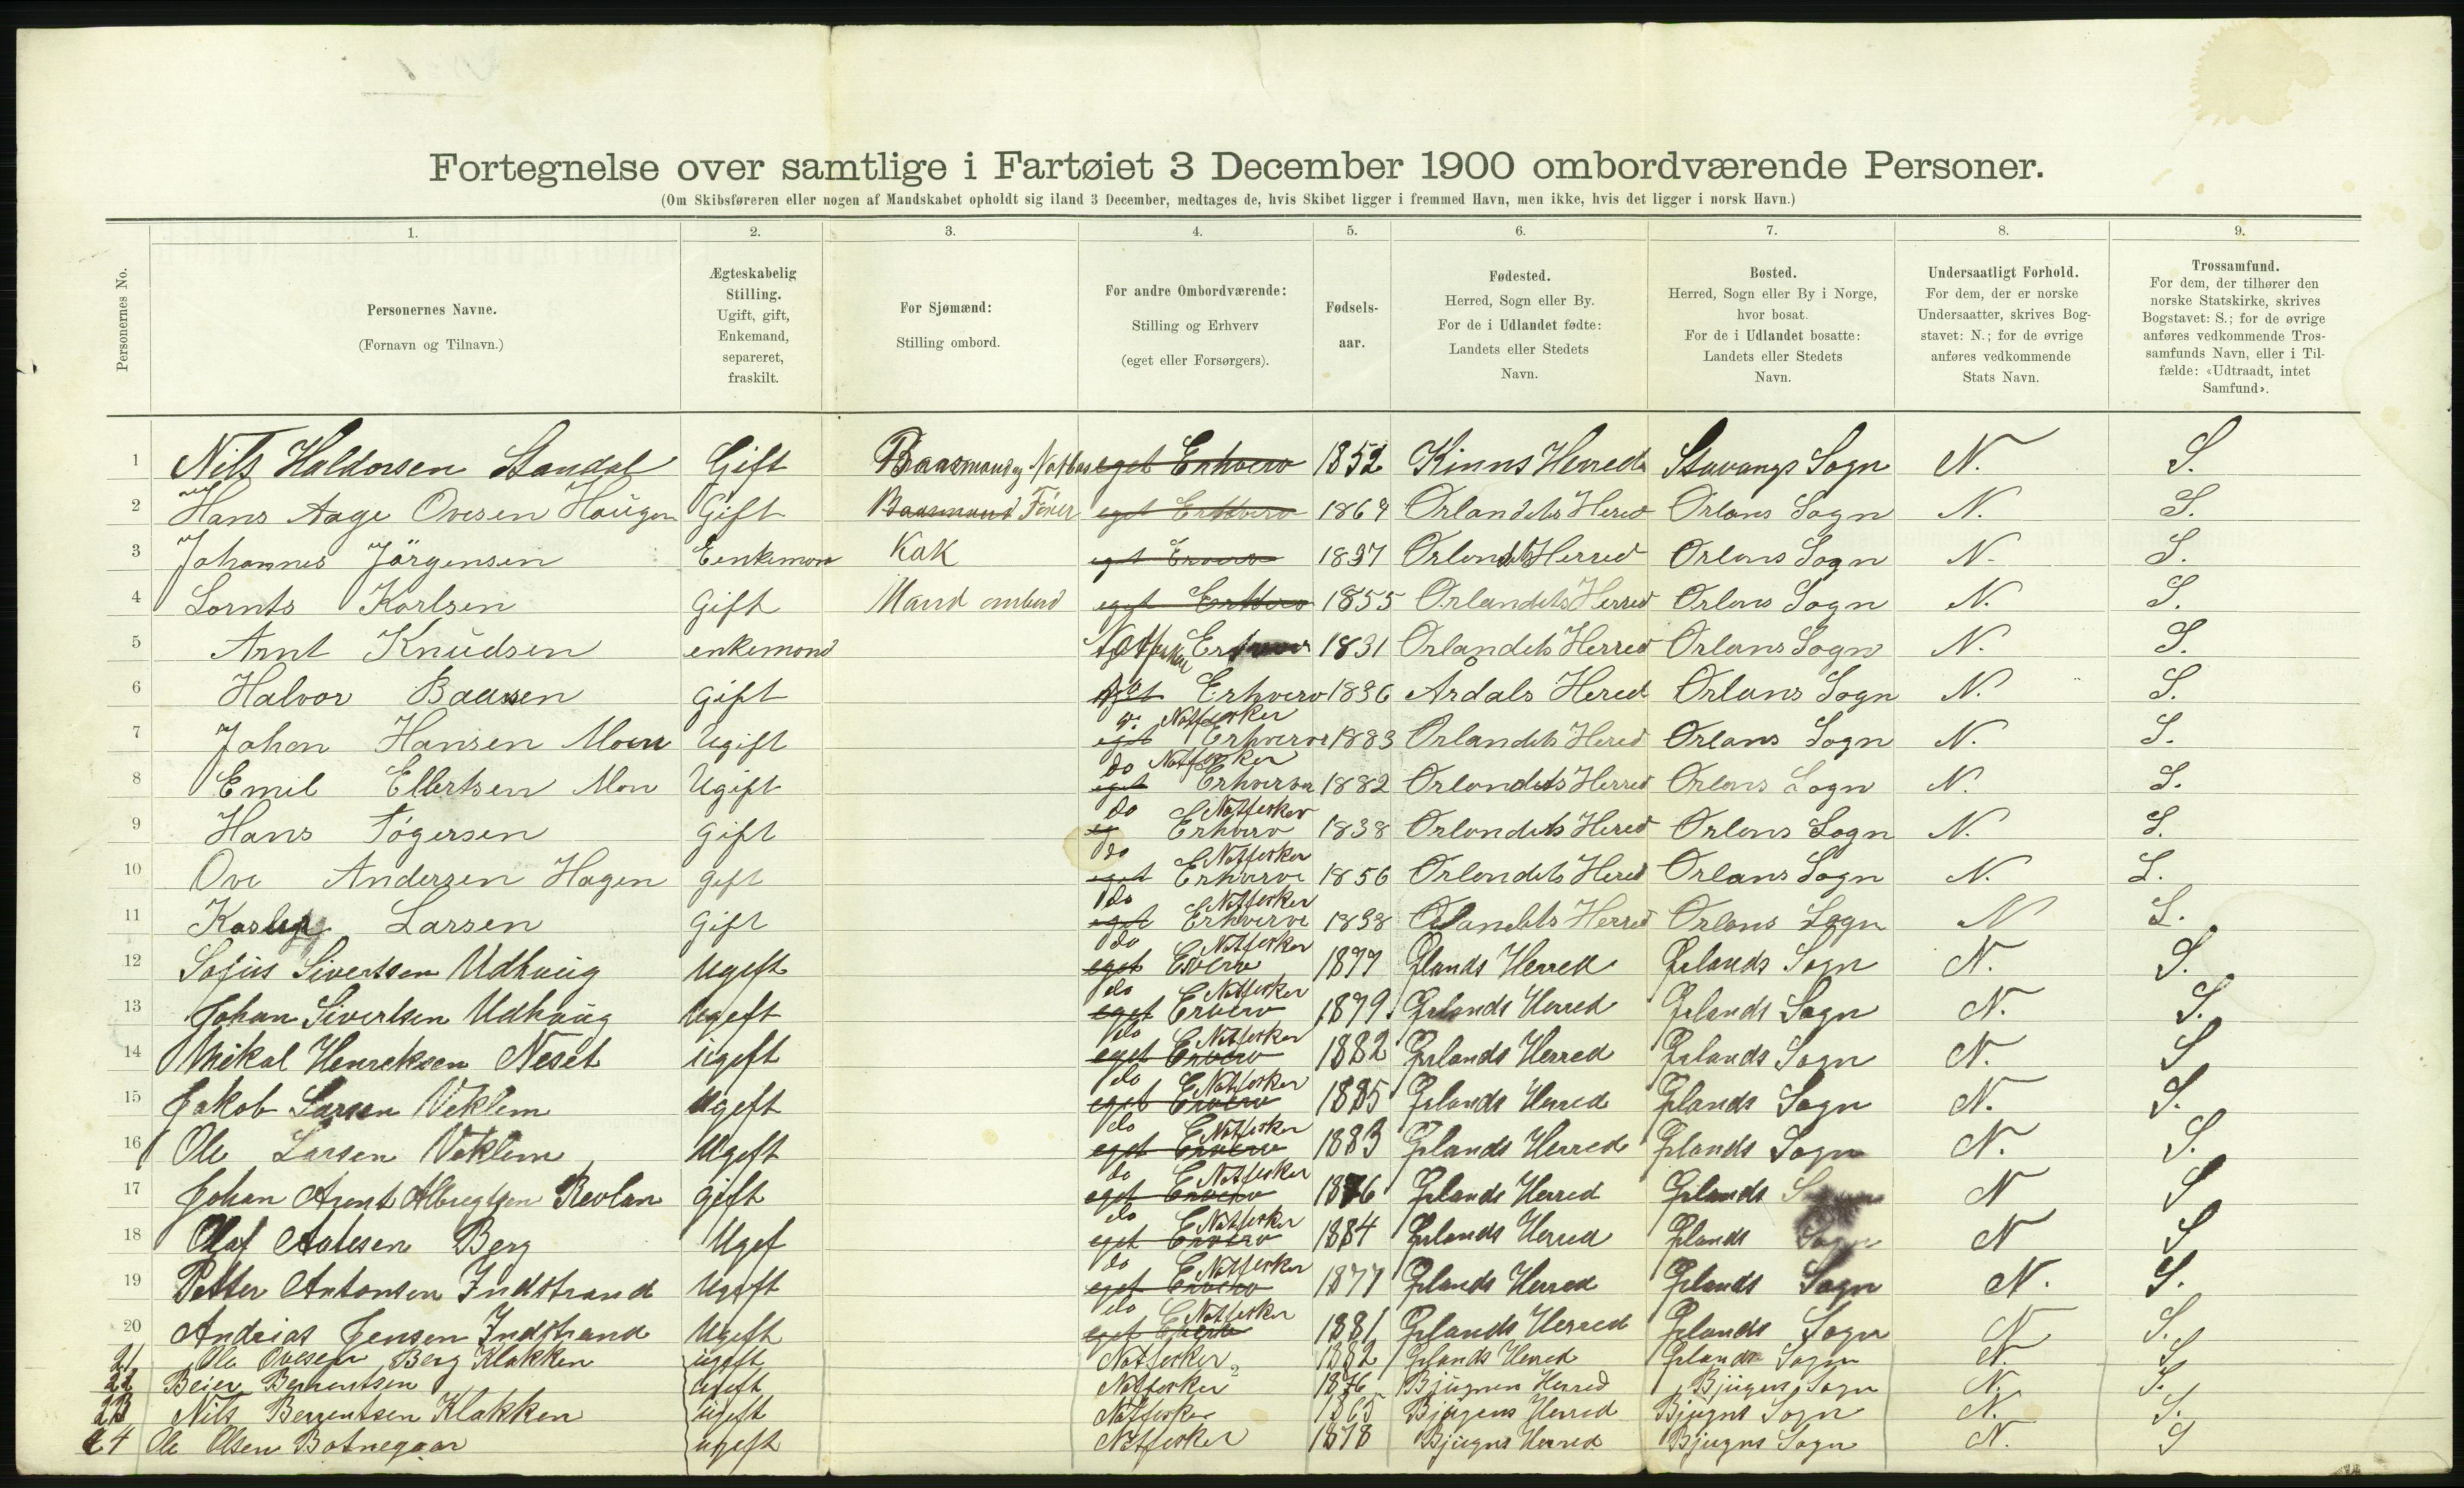 Fortegnelse over samtlige i Fartøiet 3 December 1900 ombordværende Personer.
(Om Skibsføreren eller nogen af Mandskabet opholdt sig iland 3 December, medtages de, hvis Skibet ligger i fremmed Havn, men ikke, hvis det ligger i norsk Havn.)
Personernes No.
1.
Personernes Navne.
(Fornavn og Tilnavn.)
2.
Ægteskabelig
Stilling.
Ugift, gift,
Enkemand,
separeret,
fraskilt.
3.
For Sjømænd:
Stilling ombord.
4.
For andre Ombordværende:
Stilling og Erhverv
(eget eller Forsørgers).
5.
Fødsels-
aar.
6.
Fødested.
Herred, Sogn eller By.
For de i Udlandet fødte:
Landets eller Stedets
Navn.
7.
Bosted.
Herred, Sogn eller By i Norge,
hvor bosat.
For de i Udlandet bosatte:
Landets eller Stedets
Navn.
8.
Undersaatligt Forhold.
For dem, der er norske
Undersaatter, skrives Bog-
stavet: N.; for de øvrige
anføres vedkommende
Stats Navn.
9.
Trossamfund.
For dem, der tilhører den
norske Statskirke, skrives
Bogstavet: S.; for de øvrige
anføres vedkommende Tros-
samfunds Navn, eller i Til-
fælde: «Udtraadt, intet
Samfund».
1 Nils Haldorsen Standal Gift Baasmand og eget Erhverv 1852 Kinns Herred Stavangs Sogn N. S.
2 Hans Aage Ovesen Haugen Gift Baasmand eget Erhverv 1869 Orlandets Herred Orlans Sogn N. S.
3 Johannes Jörgensen Eenkemon Kok eget 1837 Orlandets Herred Orlans Sogn N. S.
4 Lornts Karlsen Gift Mand ombord eget 1855 Orlandets Herred Orlans Sogn N. S.
5 Arnt Knudsen enkemond 1831 Orlandets Herred Orlans Sogn N. S.
6 Halvor Gift Erhverv 1836 Årdals Hered Orlans Sogn N. S.
Notfesker
7 Johan Hansen Ugift eget Erhverve 1883 Orlandets Hered Orlans Sogn N. S.
do Notfesker
8 Emil Ellertsen Mon Ugift eget Erhverve 1882 Orlandets Herred Orlans Sogn N. S.
do Notfesker
9 Hans Tögersen gift Erhverv 1838 Orlandets Hered Orlans Sogn N. S.
do Notfesker
10 Ove Andersen Hagen gift eget Erhverve 1856 Orlandets Hered Orlans Sogn N. S.
do Notfesker
11 Larsen Gift eget Erhverve 1838 Orlandets Herred Orlans Sogn N S.
do Notfesker
12 Sofus Sivertsen Udhaug Ugeft eget 1877 Ørlands Herred Ørlands Sogn N. S.
do Notfesker
13 Johan Sivertsen Udhaug Ugeft eget Erverv 1879 Ørlands Herred Ørlands Sogn N. S.
do Notfesker
14 Mikal Henreksen Neset ugeft eget Erverv 1882 Ørlands Herred Ørlands Sogn N. S
do Notfesker
15 Jakob Larsen Veklem Ugeft eget Erverv 1885 Ørlands Herred Ørlands Sogn N. S.
do Notfesker
16 Ole Larsen Veklem Ugeft eget Erverv 1883 Ørlands Herred Ørlands Sogn N. S.
do Notfesker
17 Johan Arent Albregtsen Revlan gift eget Erverv 1876 Ørlands Herred Ørlands N S
do Notfesker
18 Olaf Berg Ugef eget Erverv 1884 Ørlands Herred Ørlands Sogn N S
do Notfesker
19 Petter Antonsen Indstrand Ugeft eget Erverv 1877 Ørlands Herred Ørlands Sogn N. S.
do Notfesker
20 Andrias Jensen Indstrand Ugeft eget 1881 Ørlands Herred Ørlands Sogn N S.
21 Ole Ovesen Berg Klakken ugeft Notfesker 1882 Ørlands Herred Ørlands Sogn N. S
22 Beier Bernentsen ugeft Notfesker 1876 Bjugnen Herred Bjugens Sogn N. S.
23 Nils Bernentsen Klakken ugeft Notfesker 1865 Bjugens Herred Bjugns Sogn N. S.
24 Ole Olsen Botnegaar ugeft Notfesker 1878 Bjugns Herred Bjugns Sogn N. S